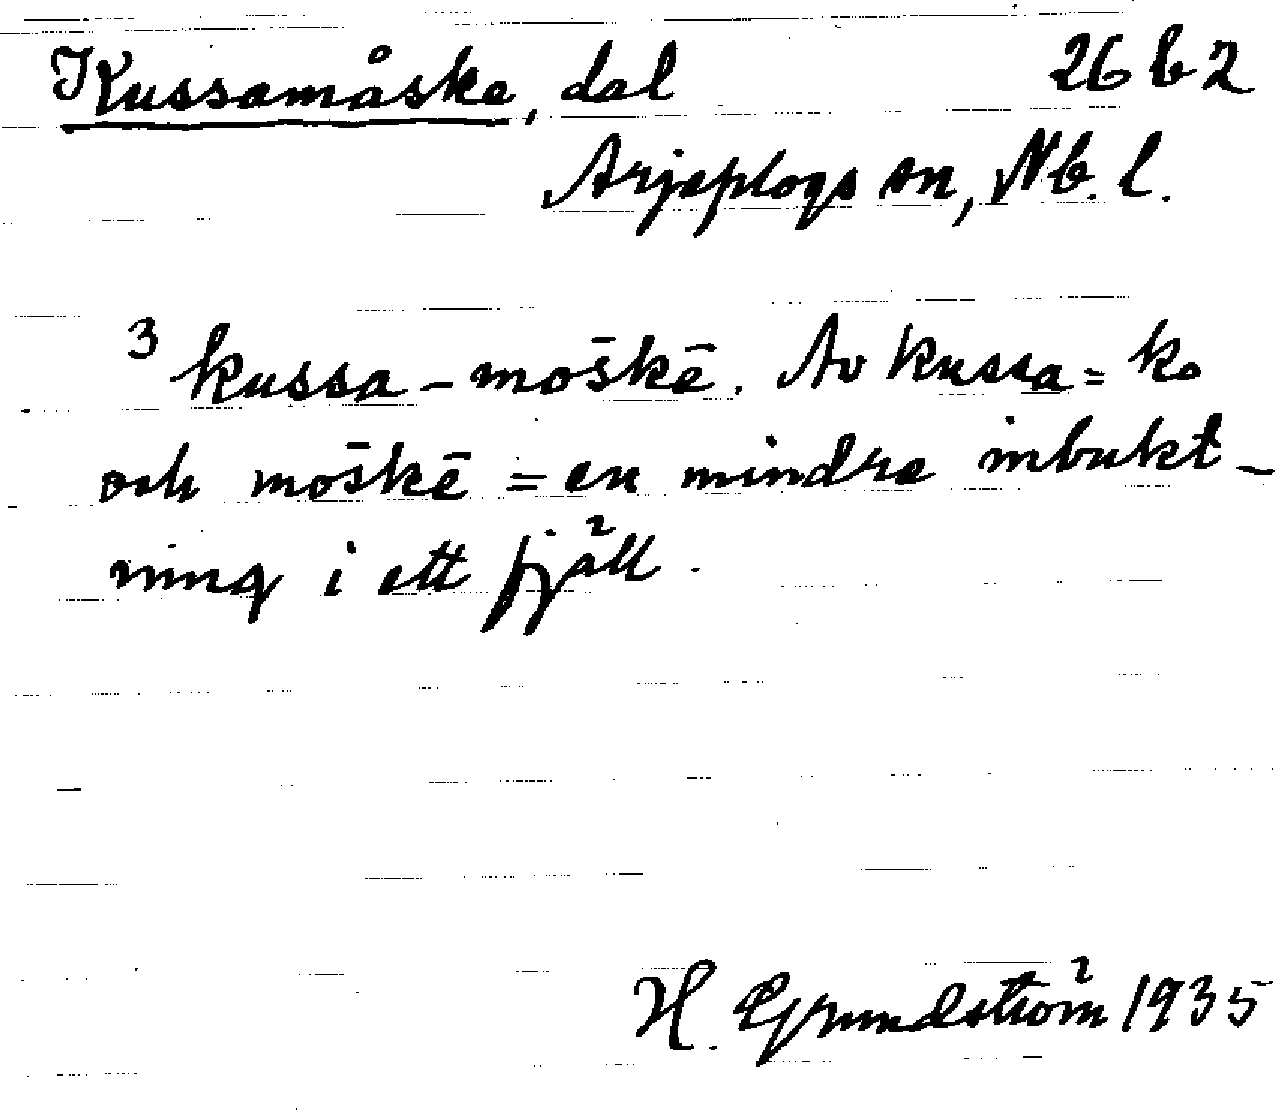 Kussamåske, dal 26 b 2
Arjeplogs sn, Nb. l.
3 kussa - mōskē. Av kussa = ko
och mōskē = en mindre inbukt-
ning i ett fjäll.
H. Grundström 1935